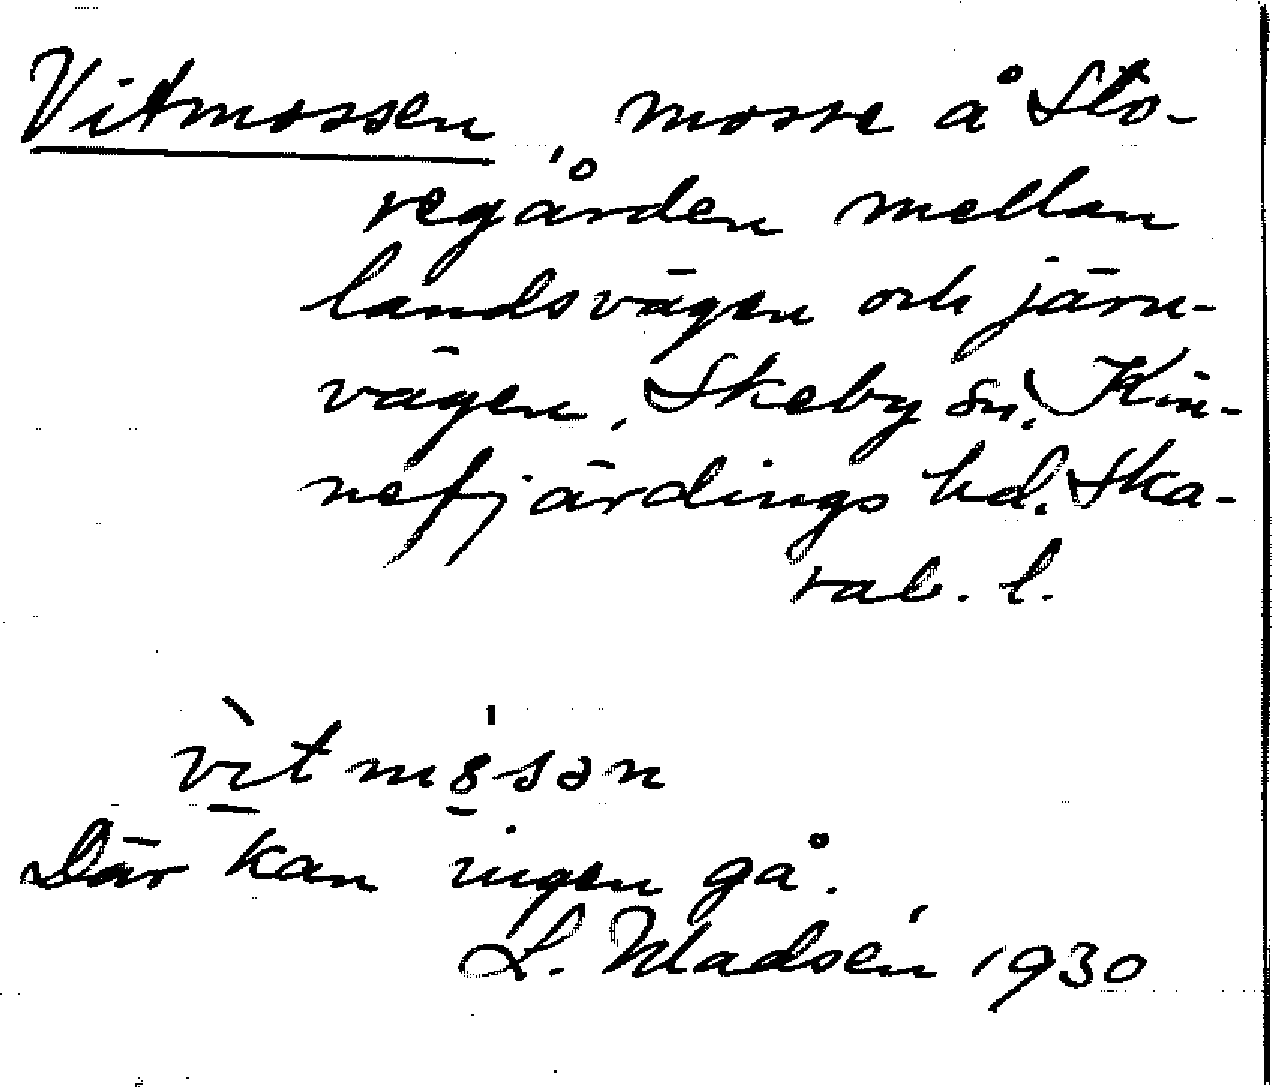 Vitmossen, mosse å Sto-
regården mellan
landsvägen och järn-
vägen. Skeby sn. Kin-
nefjärdings hd. Ska-
rab. l.
Där kan ingen gå.
L. Madsén 1930